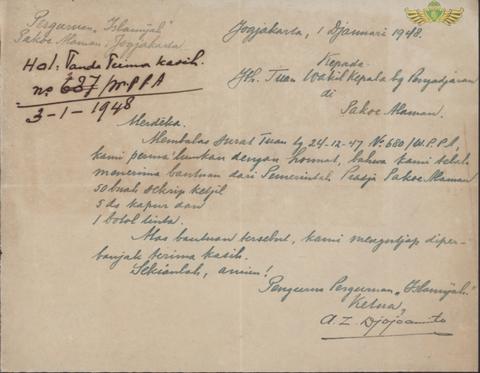 Perguruan „Islamijah"
Pakoe Alaman, Jogjakarta
Jogjakarta, 1 Djanuari 1948.
Hal: Tanda Terima kasih.
No 687/W.P.P.A
3-1-1948
Kepada
Jth. Tuan Wakil Kepala bg Pengadjaran
di
Pakoe Alaman.
Merdeka.
Membalas surat Tuan tg 24-12-47 No 680/W.P.P.A,
kami permaklumkan dengan hormat, bahwa kami telah
menerima bantuan dari Pemerintah Pradja Pakoe Alaman
50 buah sekrip ketjil
5 ds kapur dan
1 botol tinta.
Atas bantuan tersebut, kami mengutjap diper-
banjak terima kasih.
Sekianlah, amien!
Pengurus Perguruan „Islamijah."
Ketua,
A. Z.